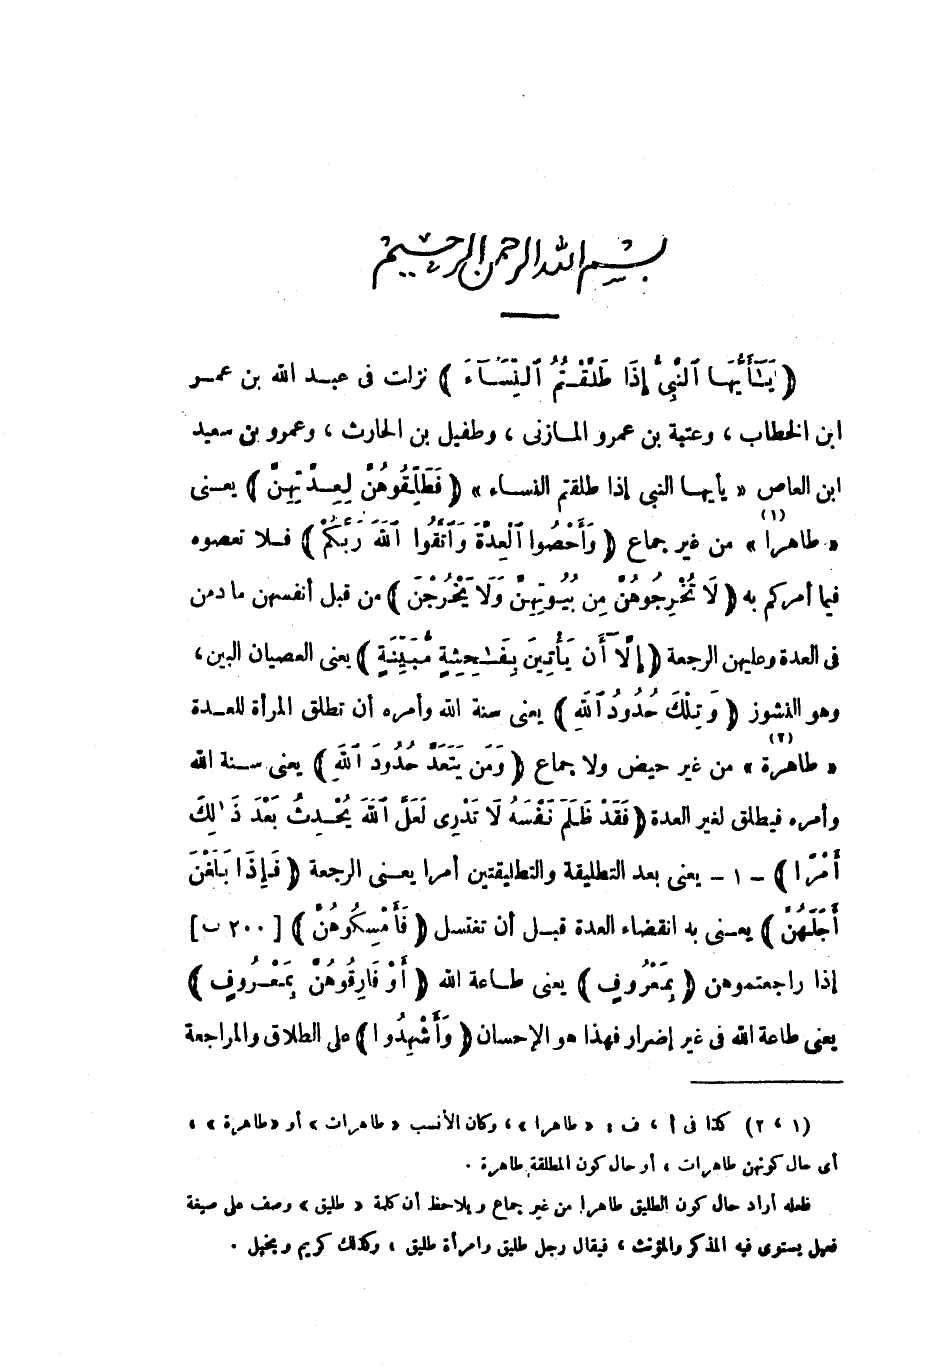 بسم الله الرحمن الرحيم
﴿ يَـٰٓأَيُّهَا ٱلنَّبِىُّ إِذَا طَلَّقْتُمُ ٱلنِّسَآءَ ﴾ نزلت فى عبد الله بن عمر
ابن الخطاب ، وعتبة بن عمرو المازنى ، وطفيل بن الحارث ، وعمرو بن سعيد
ابن العاص « يأيها النبى إذا طلقتم النساء » ﴿ فَطَلِّقُوهُنَّ لِعِدَّتِهِنَّ ﴾ يعنى
« طاهرا » (١) من غير جماع ﴿ وَأَحْصُوا ٱلْعِدَّةَ وَٱتَّقُوا ٱللَّهَ رَبَّكُمْ ﴾ فلا تعصوه
فيما أمركم به ﴿ لَا تُخْرِجُوهُنَّ مِن بُيُوتِهِنَّ وَلَا يَخْرُجْنَ ﴾ من قبل أنفسهن ما دمن
فى العدة وعليهن الرجعة ﴿ إِلَّآ أَن يَأْتِينَ بِفَـٰحِشَةٍ مُّبَيِّنَةٍ ﴾ يعنى العصيان البين ،
وهو النشوز ﴿ وَتِلْكَ حُدُودُ ٱللَّهِ ﴾ يعنى سنة الله وأمره أن تطلق المرأة للعدة
« طاهرة » (٢) من غير حيض ولا جماع ﴿ وَمَن يَتَعَدَّ حُدُودَ ٱللَّهِ ﴾ يعنى سنة الله
وأمره فيطلق لغير العدة ﴿ فَقَدْ ظَلَمَ نَفْسَهُ لَا تَدْرِى لَعَلَّ ٱللَّهَ يُحْدِثُ بَعْدَ ذَ ٰلِكَ
أَمْرًا ﴾ - ١ - يعنى بعد التطليقة والتطليقتين أمرا يعنى الرجعة ﴿ فَإِذَا بَلَغْنَ
أَجَلَهُنَّ ﴾ يعنى به انقضاء العدة قبل أن تغتسل ﴿ فَأَمْسِكُوهُنَّ ﴾ [ ٢٠٠ ب ]
إذا راجعتموهن ﴿ بِمَعْرُوفٍ ﴾ يعنى طاعة الله ﴿ أَوْ فَارِقُوهُنَّ بِمَعْرُوفٍ ﴾
يعنى طاعة الله فى غير إضرار فهذا هو الإحسان ﴿ وَأَشْهِدُوا ﴾ على الطلاق والمراجعة
(١ ، ٢) كذا فى أ ، ف : « طاهرا » ، وكان الأنسب « طاهرات » أو « طاهرة » ،
أى حال كونهن طاهرات ، أو حال كون المطلقة طاهرة .
فلعله أراد حال كون الطليق طاهرا من غير جماع ويلاحظ أن كلمة « طليق » وصف على صيغة
فعيل يستوى فيه المذكر والمؤنث ، فيقال رجل طليق وامرأة طليق ، وكذلك كريم وبخيل .